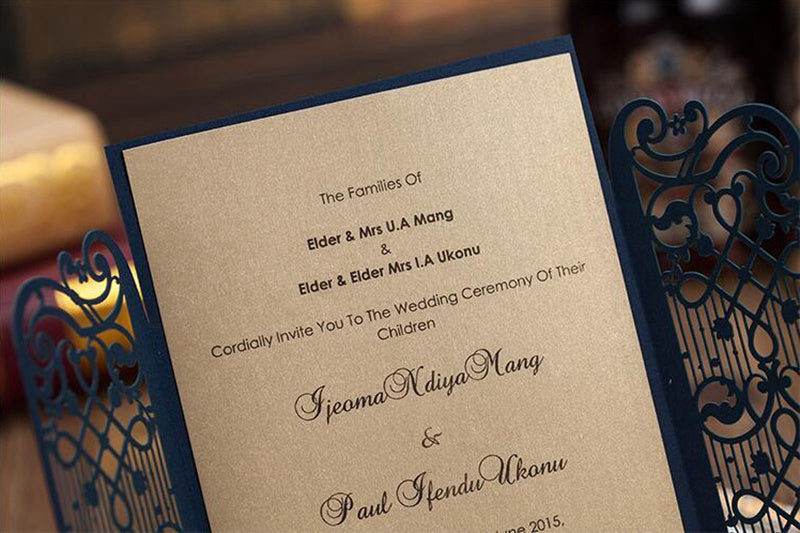 The Families Of
Elder & Mrs U.A Mang
&
Elder & Elder Mrs I.A Ukonu
Cordially Invite You To The Wedding Ceremony Of Their
Children
IjeomaNdiyaMang
&
Paul IfenduUkonu
June 2015,